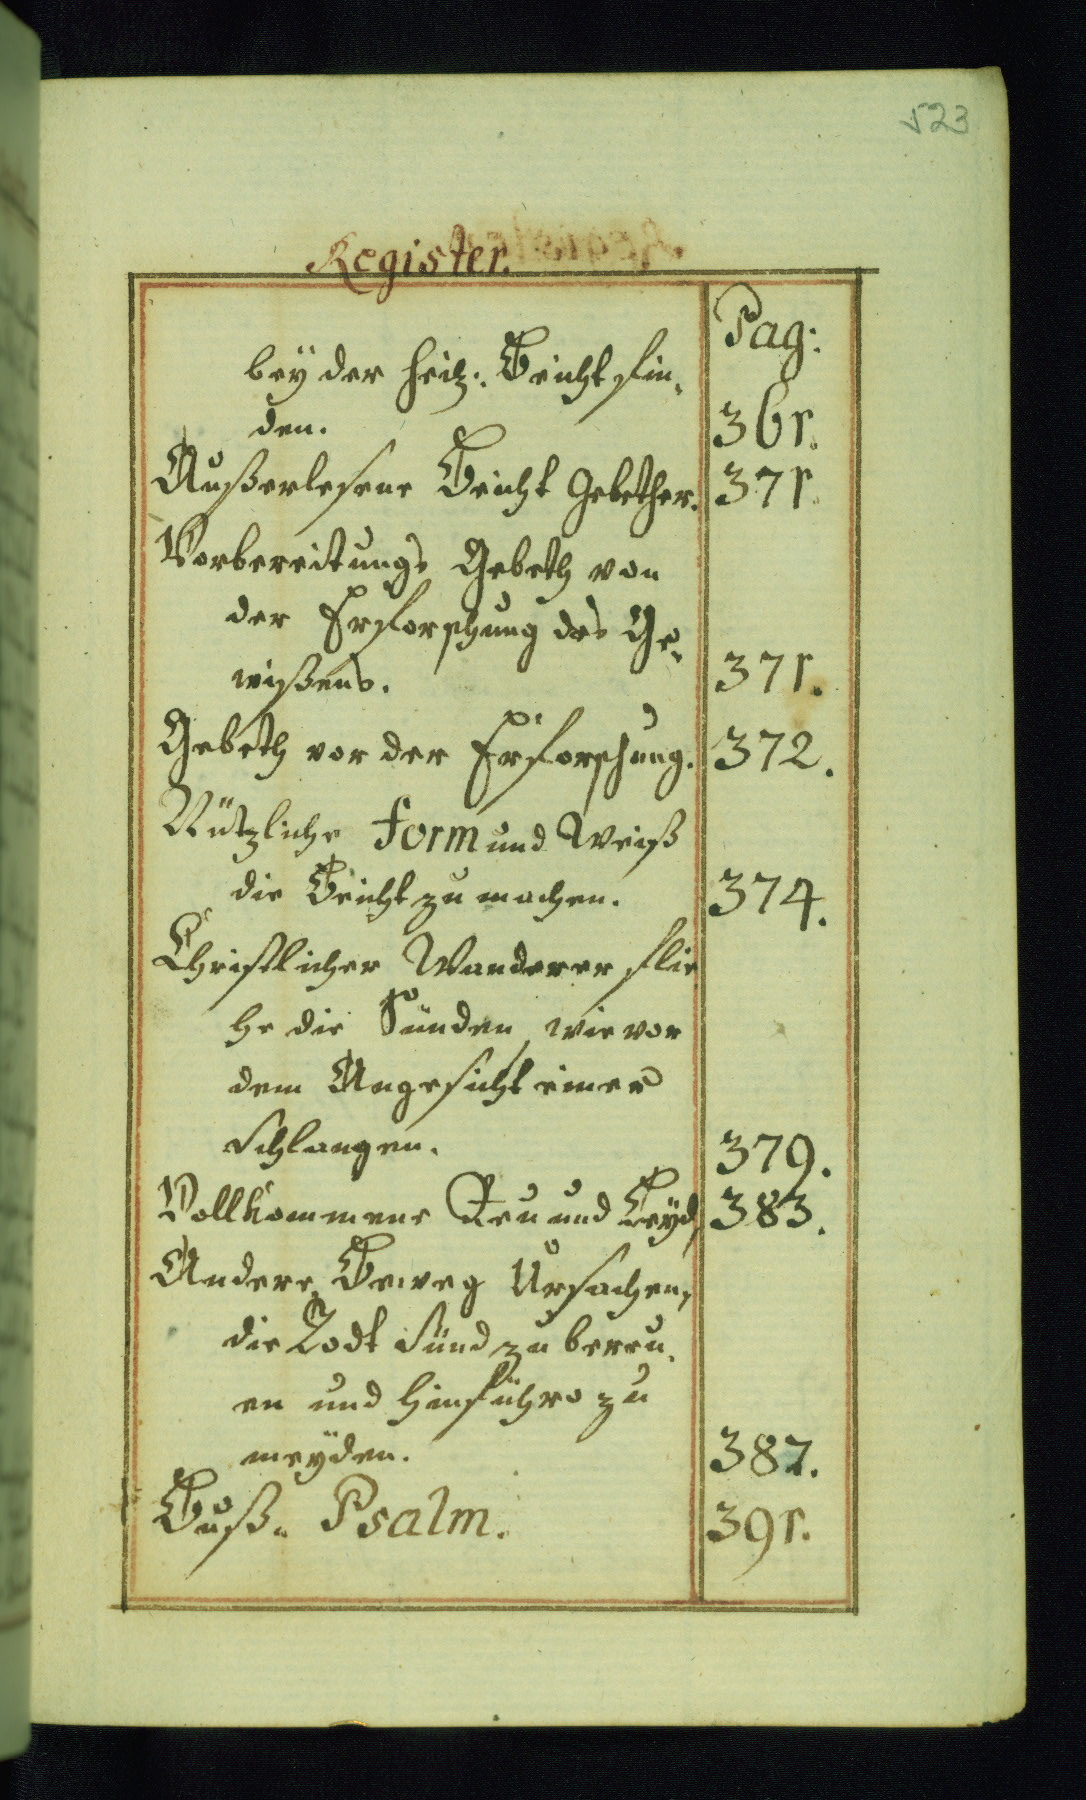 523
Register.
Pag:
bey der heil: Beicht fin„
den. 361.
Außerlesene Beicht Gebether. 371
Vorbereitungs Gebeth von
der Erforschung des Ge„
wißens. 371.
Gebeth vor der Erforschung. 372.
Nützliche form und Weiß
die Beicht zu machen. 374.
Christlicher Wanderer flie
he die Sünden, wie vor
dem Angesicht einer
Schlangen. 379.
Vollkommene Reu und Leyd, 383.
Andere Beweg Ursachen,
die Todt Sünd zu bereu„
en und hinführo zu
meyden. 387.
Buß„ Psalm. 391.